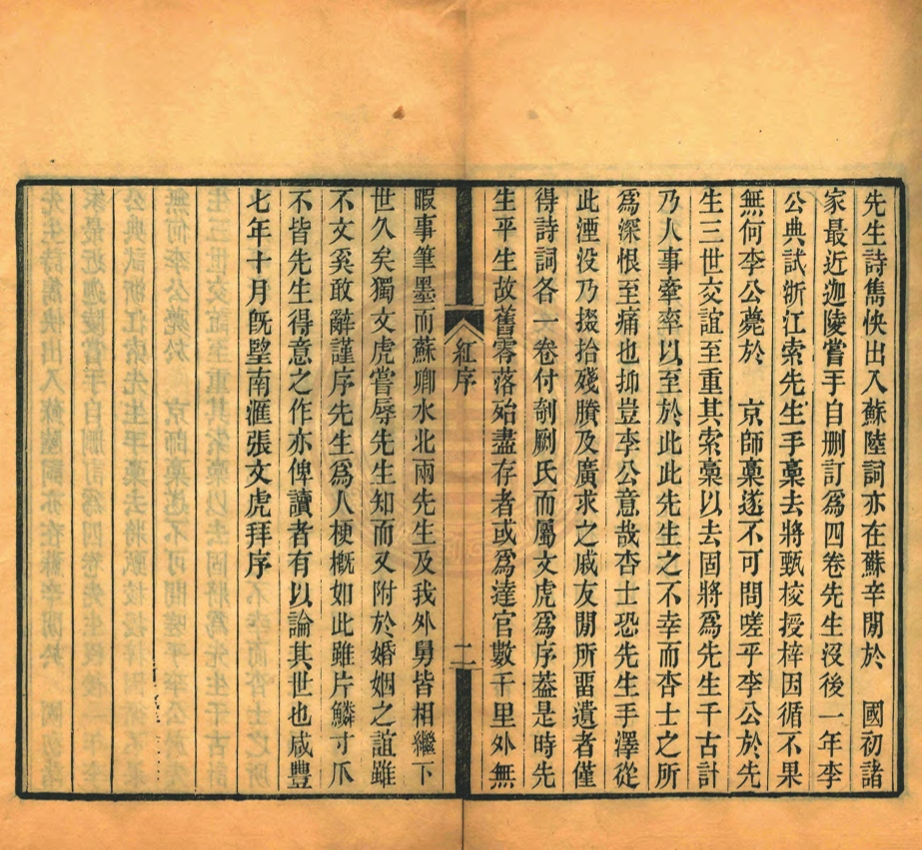 先生詩雋快出入蘇陸詞亦在蘇辛閒於　國初諸
家最近迦陵嘗手自删訂爲四卷先生沒後一年李
公典試浙江索先生手稾去將甄校授梓因循不果
無何李公薨於　京師稾遂不可問嗟乎李公於先
生三世交誼至重其索稾以去固將爲先生千古計
乃人事牽率以至於此此先生之不幸而杏士之所
爲深恨至痛也抑豈李公意哉杏士恐先生手澤從
此湮没乃掇拾殘賸及廣求之戚友閒所畱遺者僅
得詩詞各一卷付剞劂氏而屬文虎爲序葢是時先
生平生故舊零落殆盡存者或爲達官數千里外無
紅序
二
暇事筆墨而蘇卿水北兩先生及我外舅皆相繼下
世久矣獨文虎嘗辱先生知而又附於婚姻之誼雖
不文奚敢辭謹序先生爲人梗槪如此雖片鱗寸爪
不皆先生得意之作亦俾讀者有以論其世也咸豐
七年十月旣朢南滙張文虎拜序